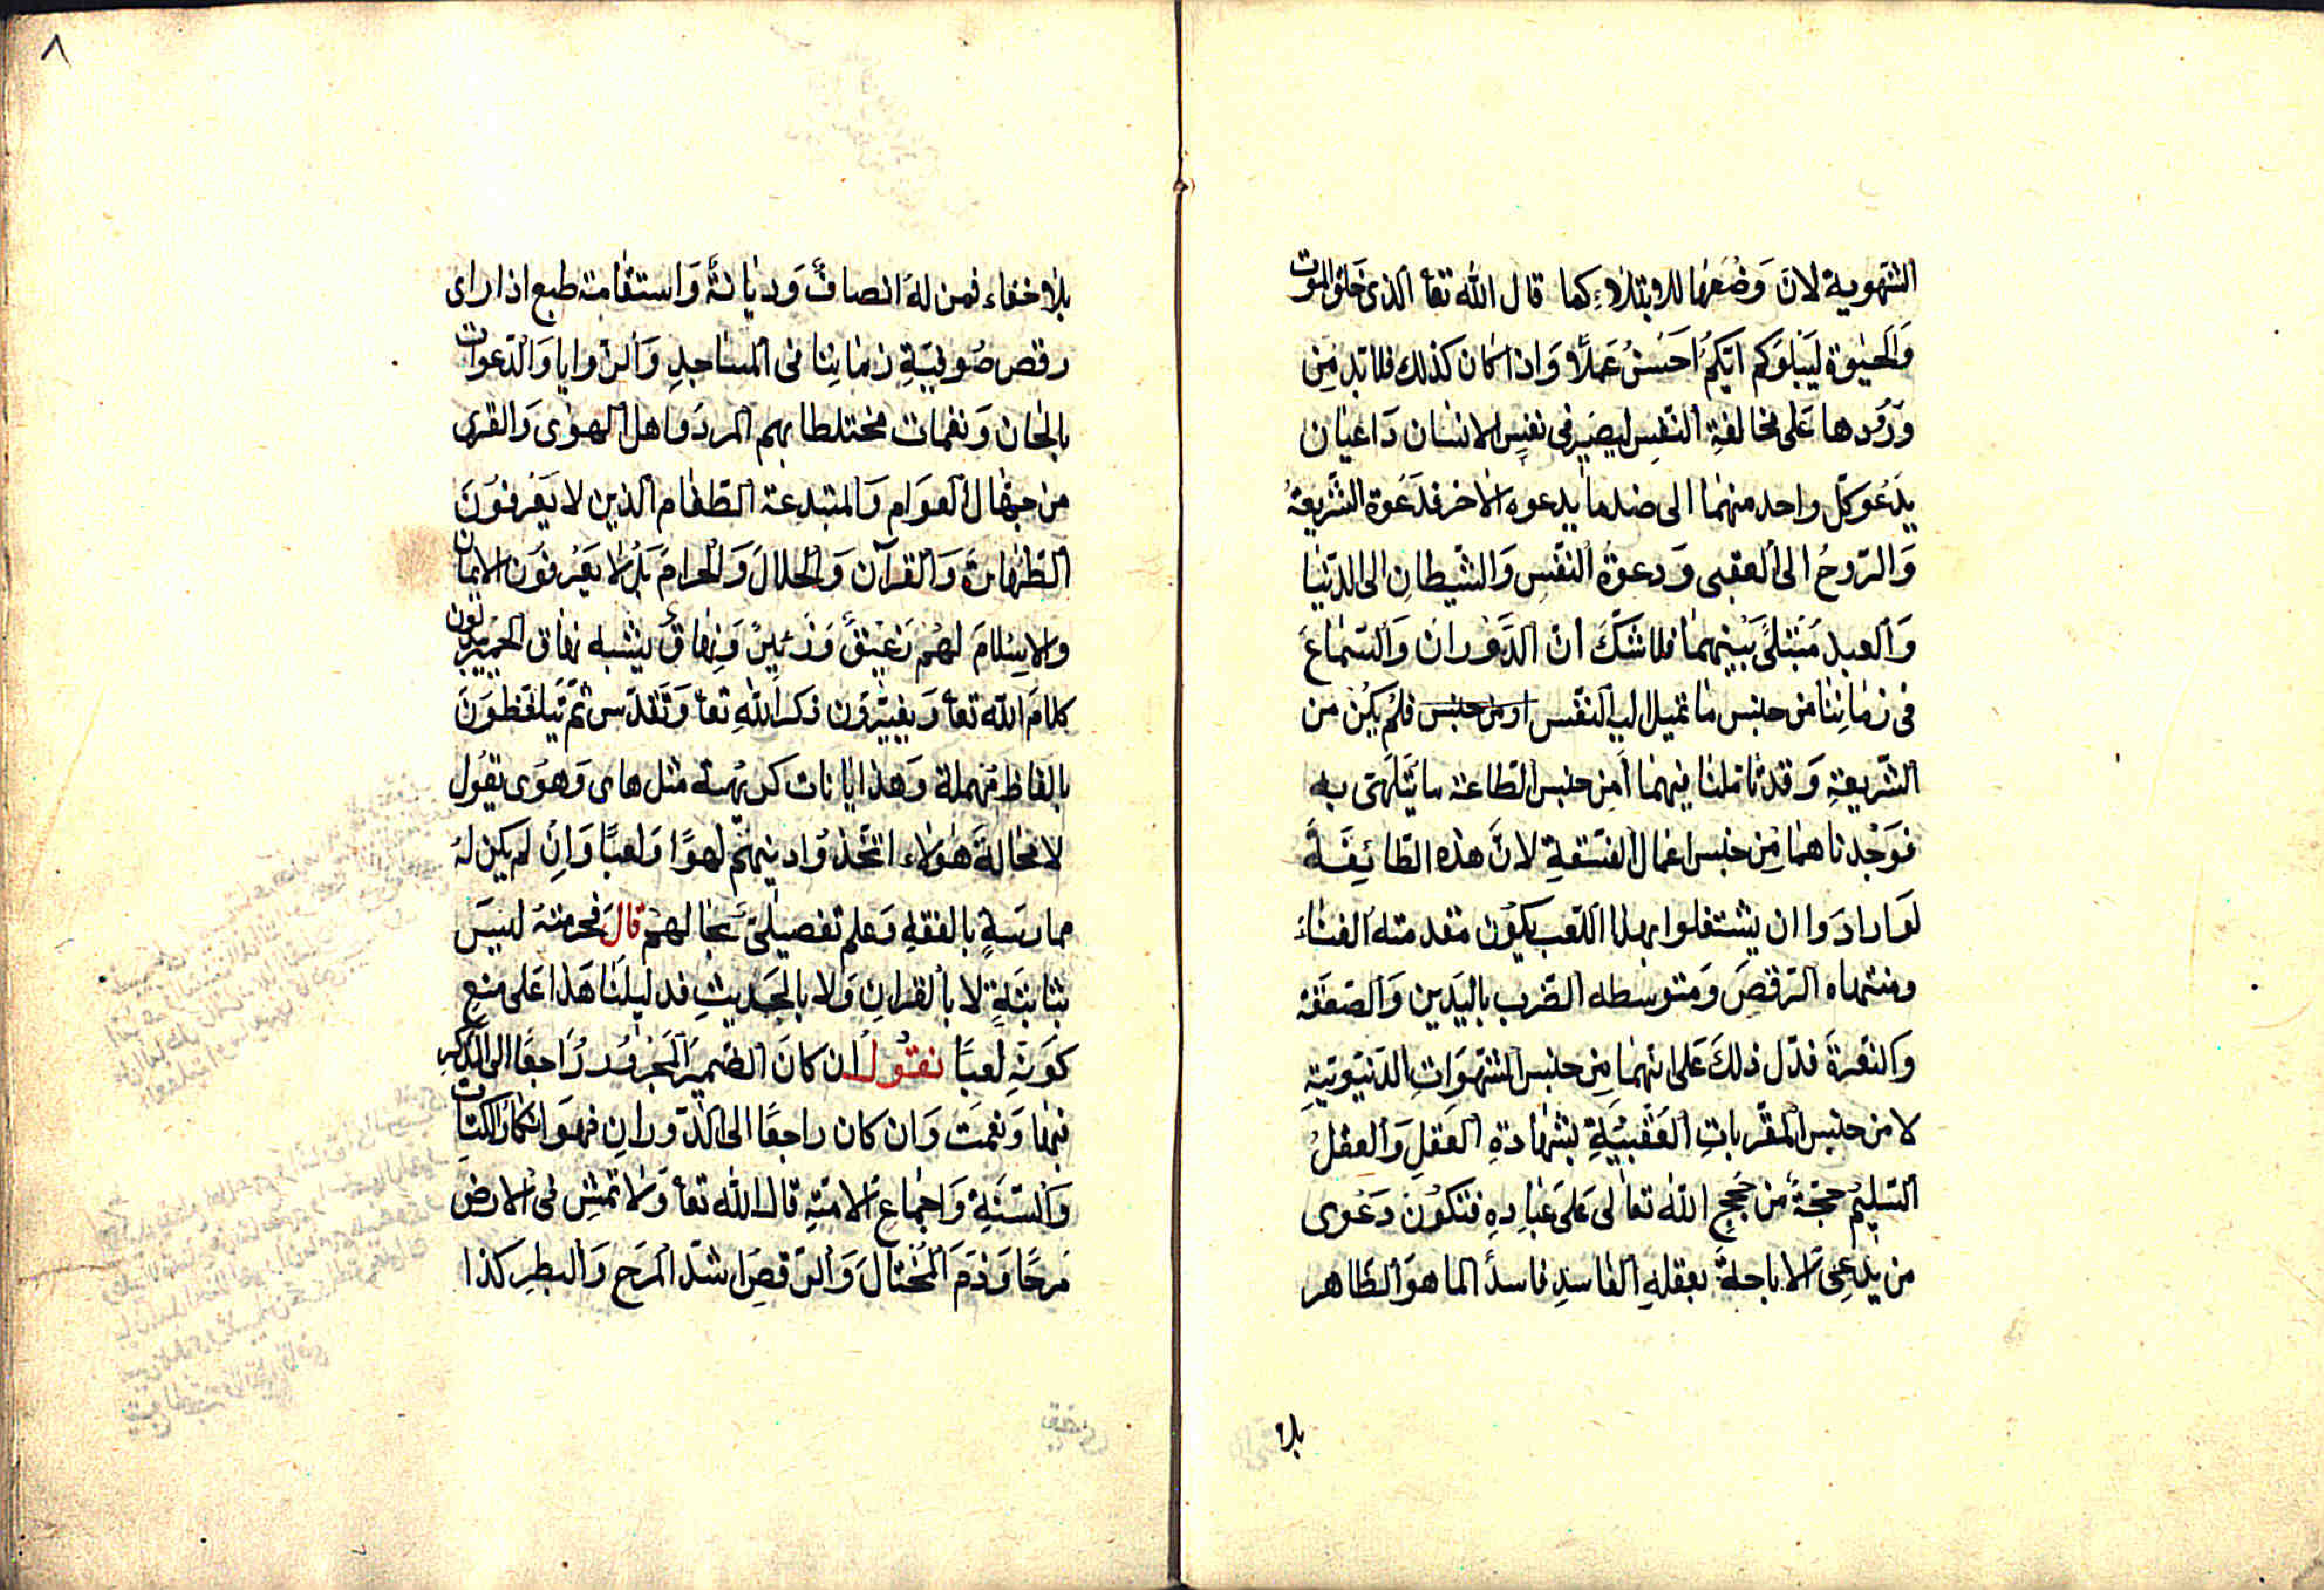 الشهوية لانّ وَضْعَها للابتلاءِ كما قال الله تعا الذى خلق الموت
وَالحيٰوة ليَبْلوَكم ايّكمُ احَسَنُ عَملًا وَاذا كان كذلك فلا بد مِن
وُرُودها عَلى مخالفةِ النّفسِ ليصَير فى نفسِ الانسان دَاعيان
يدَعُو كلّ واحد منهمَا الى ضدما يدعوه الاخر فدَعُوة الشّريعَة
وَالرّوحُ الى العقبى وَدعوة النّفسِ وَالشّيطانِ الى الدّنيَا
وَالعبد مُبْتلىً بَيْنهمَا فلا شَكّ انّ الدَّوْران وَالسّماعَ
فى زمَانِنَا من جنِس مَا تميل اليه النفْس او من جنس فلمْ يكُن من
الشّريعةِ وَقد تامّلنا فيهمَا امِن جنِس الطّاعة ما يَتَلهّى به
فوَجْدناهمَا مِن جنس اعمال الفسَقةِ لانَّ هذه الطّائِفَةً
لمّا ارادَوا ان يشتغلوا بهذا اللّعب يكوُن مقدمته الغناءَ
ومنتهاه الرّقصَ وَمتوسطه الضّرب باليَدين وَالصّعقة
وَالنعرة فدّل ذلكَ عَلى انهمَا مِن جنِس الشّهَواتِ الدّنيَويّةِ
لا من جنس المقرباتِ العُقْبيّةِ بشهادةِ العَقلِ وَالعقلُ
السّليمُ حجّةً من حُجج الله تعالى عَلى عبَادِهِ فتكُونُ دَعْوى
من يدّعِى الاباحة بعقلهِ الفاسدِ فاسداً لما هوَ الظّاهر
بلا
٨
بلا خفاء فمن له انصافٌ وَديَانة وَاستقامة طبع اذا راى
رقص صُوفيَةِ زمَانِنا فى المسَاجدِ وَالزّوايا وَالدّعوات
بالحان وَنغمات مختلطا بهم المردُ وَاهل الهوىٰ وَالقرى
من جهّال العوَام وَالمبتدعة الطّغام الذين لا يَعْرفوُنَ
الطّهَارة وَالقرآن وَالحلالَ وَالحرامَ بَلْ لا يعَرفوُن الايمان
والاسْلامَ لهُم زَعِيقٌ وَزَئيرٌ وَنِهاقٌ يشبه نهاق الحَمِير يبدّلون
كلامَ الله تعا وَيغيّرُون ذكر اللهِ تعا وَتَقَدّس ثمّ يَتلفّظوُنَ
بالفاظ مُهملة وَهذايانات كريهة مثل هاى وَهوَى يقوُل
لا محالةَ هٰؤلاء اتّخذوُا دينهُم لهوًا وَلعبًا وَانِ لم يكن لهُ
ممارسَةٍ بالفقهِ وَعلم تفصيلىّ بحالهُم قالَ فحرمتهُ ليسَ
بثابتَةٍ لا بالقرانِ وَلا بالحَديثِ فدليلنَا هَذا عَلى منعِ
كوَنهِ لعبًا نقوُل ان كانَ الضّميَر المجَرْوُر رَاجعًا الى الذّكر
فبَها وَنعْمَت وَان كان راجعًا الى الدّورانِ فهوَ انكار الكتاب
وَالسّنَةِ وَاجماعِ الامّةِ قال الله تعا وَلا تمْشِ فى الارض
مَرحًا وَذمّ المُخْتالَ وَالرّقصِ اشدّ المرَح وَالبطر كذا